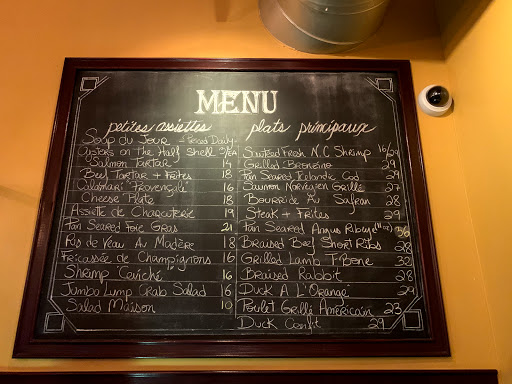 MENU
petites assiettes
Soup du Jour - Priced Daily -
Oysters on the Half Shell 3/EA
Salmon Tartar
Beef Tartar + Frites 18
Calamari "Provençale" 16
Cheese Plate 18
Assiette de Charcuterie 19
Pan Seared Foie Gras 21
Ris de Veau Au Madère 18
Fricassée de Champignons 16
Shrimp Ceviché 16
Jumbo Lump Crab Salad 16
Salad Maison 10
plats principaux
Sauteed Fresh N.C Shrimp 16/29
Grilled Bronzino 29
Pan Seared Icelandic Cod 29
Saumon Norvegien Grillé 27
Bourride Au Safran 28
Steak + Frites 29
Pan Seared Angus Ribeye 36
Braised Beef Short Ribs 28
Grilled Lamb T-Bone 32
Braised Rabbit 28
Duck A L'Orange 29
Poulet Grillé Américain 23
Duck Confit 29